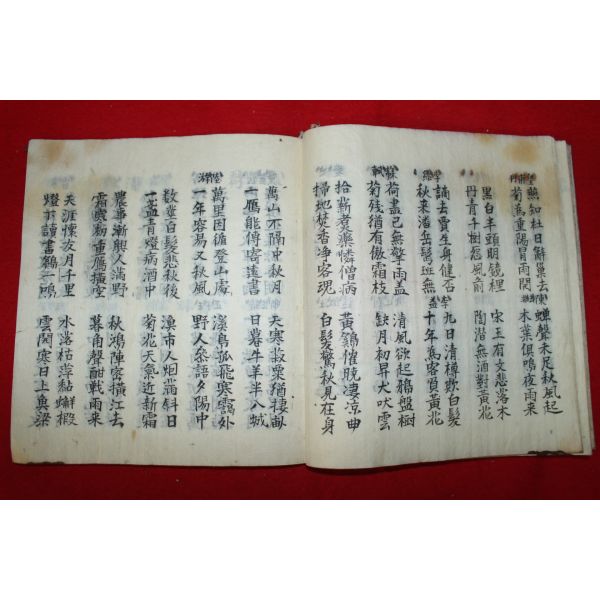 燕知社日辭巢去 蟬聲未足秋風起
菊爲重陽冒雨開 木葉俱鳴夜雨来
黑白半頭明鏡裡 宋玉有文悲落木
丹青千樹怨風前 陶潛無酒對黃花
誦去賈生身健否 九日清樽欺白髮
秋来潘岳鬂斑無 十年爲客負黃花
荷盡已無擎雨盖 清風欲起鴉盤樹
菊残猶有傲霜枝 缺月初昇犬吠雲
拾薪煮藥憐僧病 黃鷄催曉凄凉曲
掃地焚香净客魂 白髮驚秋見在身
萬山不隔中秋月 天寒菽粟猶棲畝
一鴈能傳寄遠書 日暮牛羊半入城
萬里因循登山處 溪鳥孤飛寒靄外
一年容易又秋風 野人參語夕陽中
數莖白髮悲秋後 漁市人烟滿斜日
一盞青燈病酒中 菊花天氣近新霜
農事漸興人滿野 秋鴻陣容橫江去
霜寒初重鴈橫空 暮角聲酣戰雨来
天涯懷友月千里 水落枯萍黏蠏椴
燈前讀書鷄一鳴 雲閑寒日上魚梁